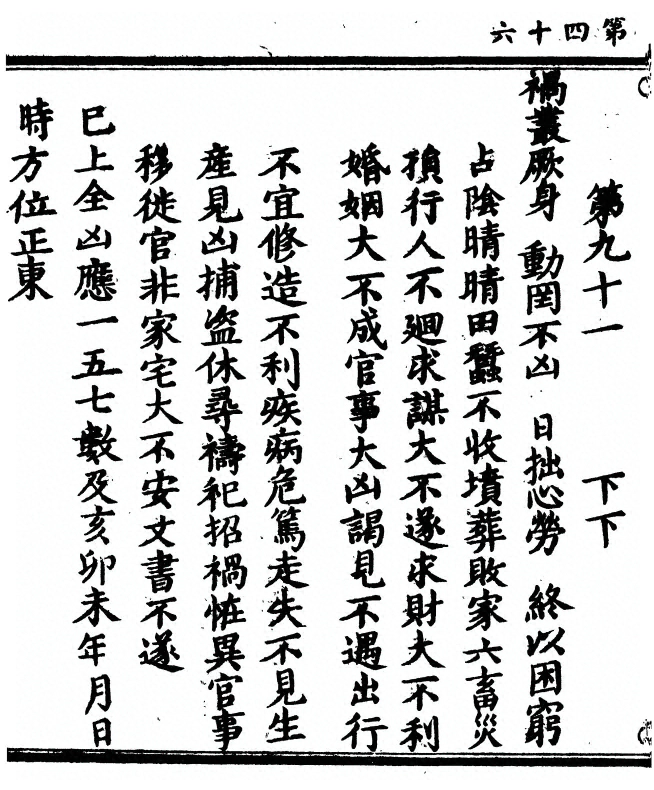 第四十六
第九十一 下下
禍叢厥身 動罔不凶 日拙心勞 終以困窮
占陰晴晴田蠶不收墳葬敗家六畜災
損行人不廻求謀大不遂求財大不利
婚姻大不成官事大凶謁見不遇出行
不宜修造不利疾病危篤走失不見生
產見凶捕盜休尋禱祀招禍恠異官事
移徙官非家宅大不安文書不遂
巳上全凶應一五七數及亥卯未年月日
時方位正東